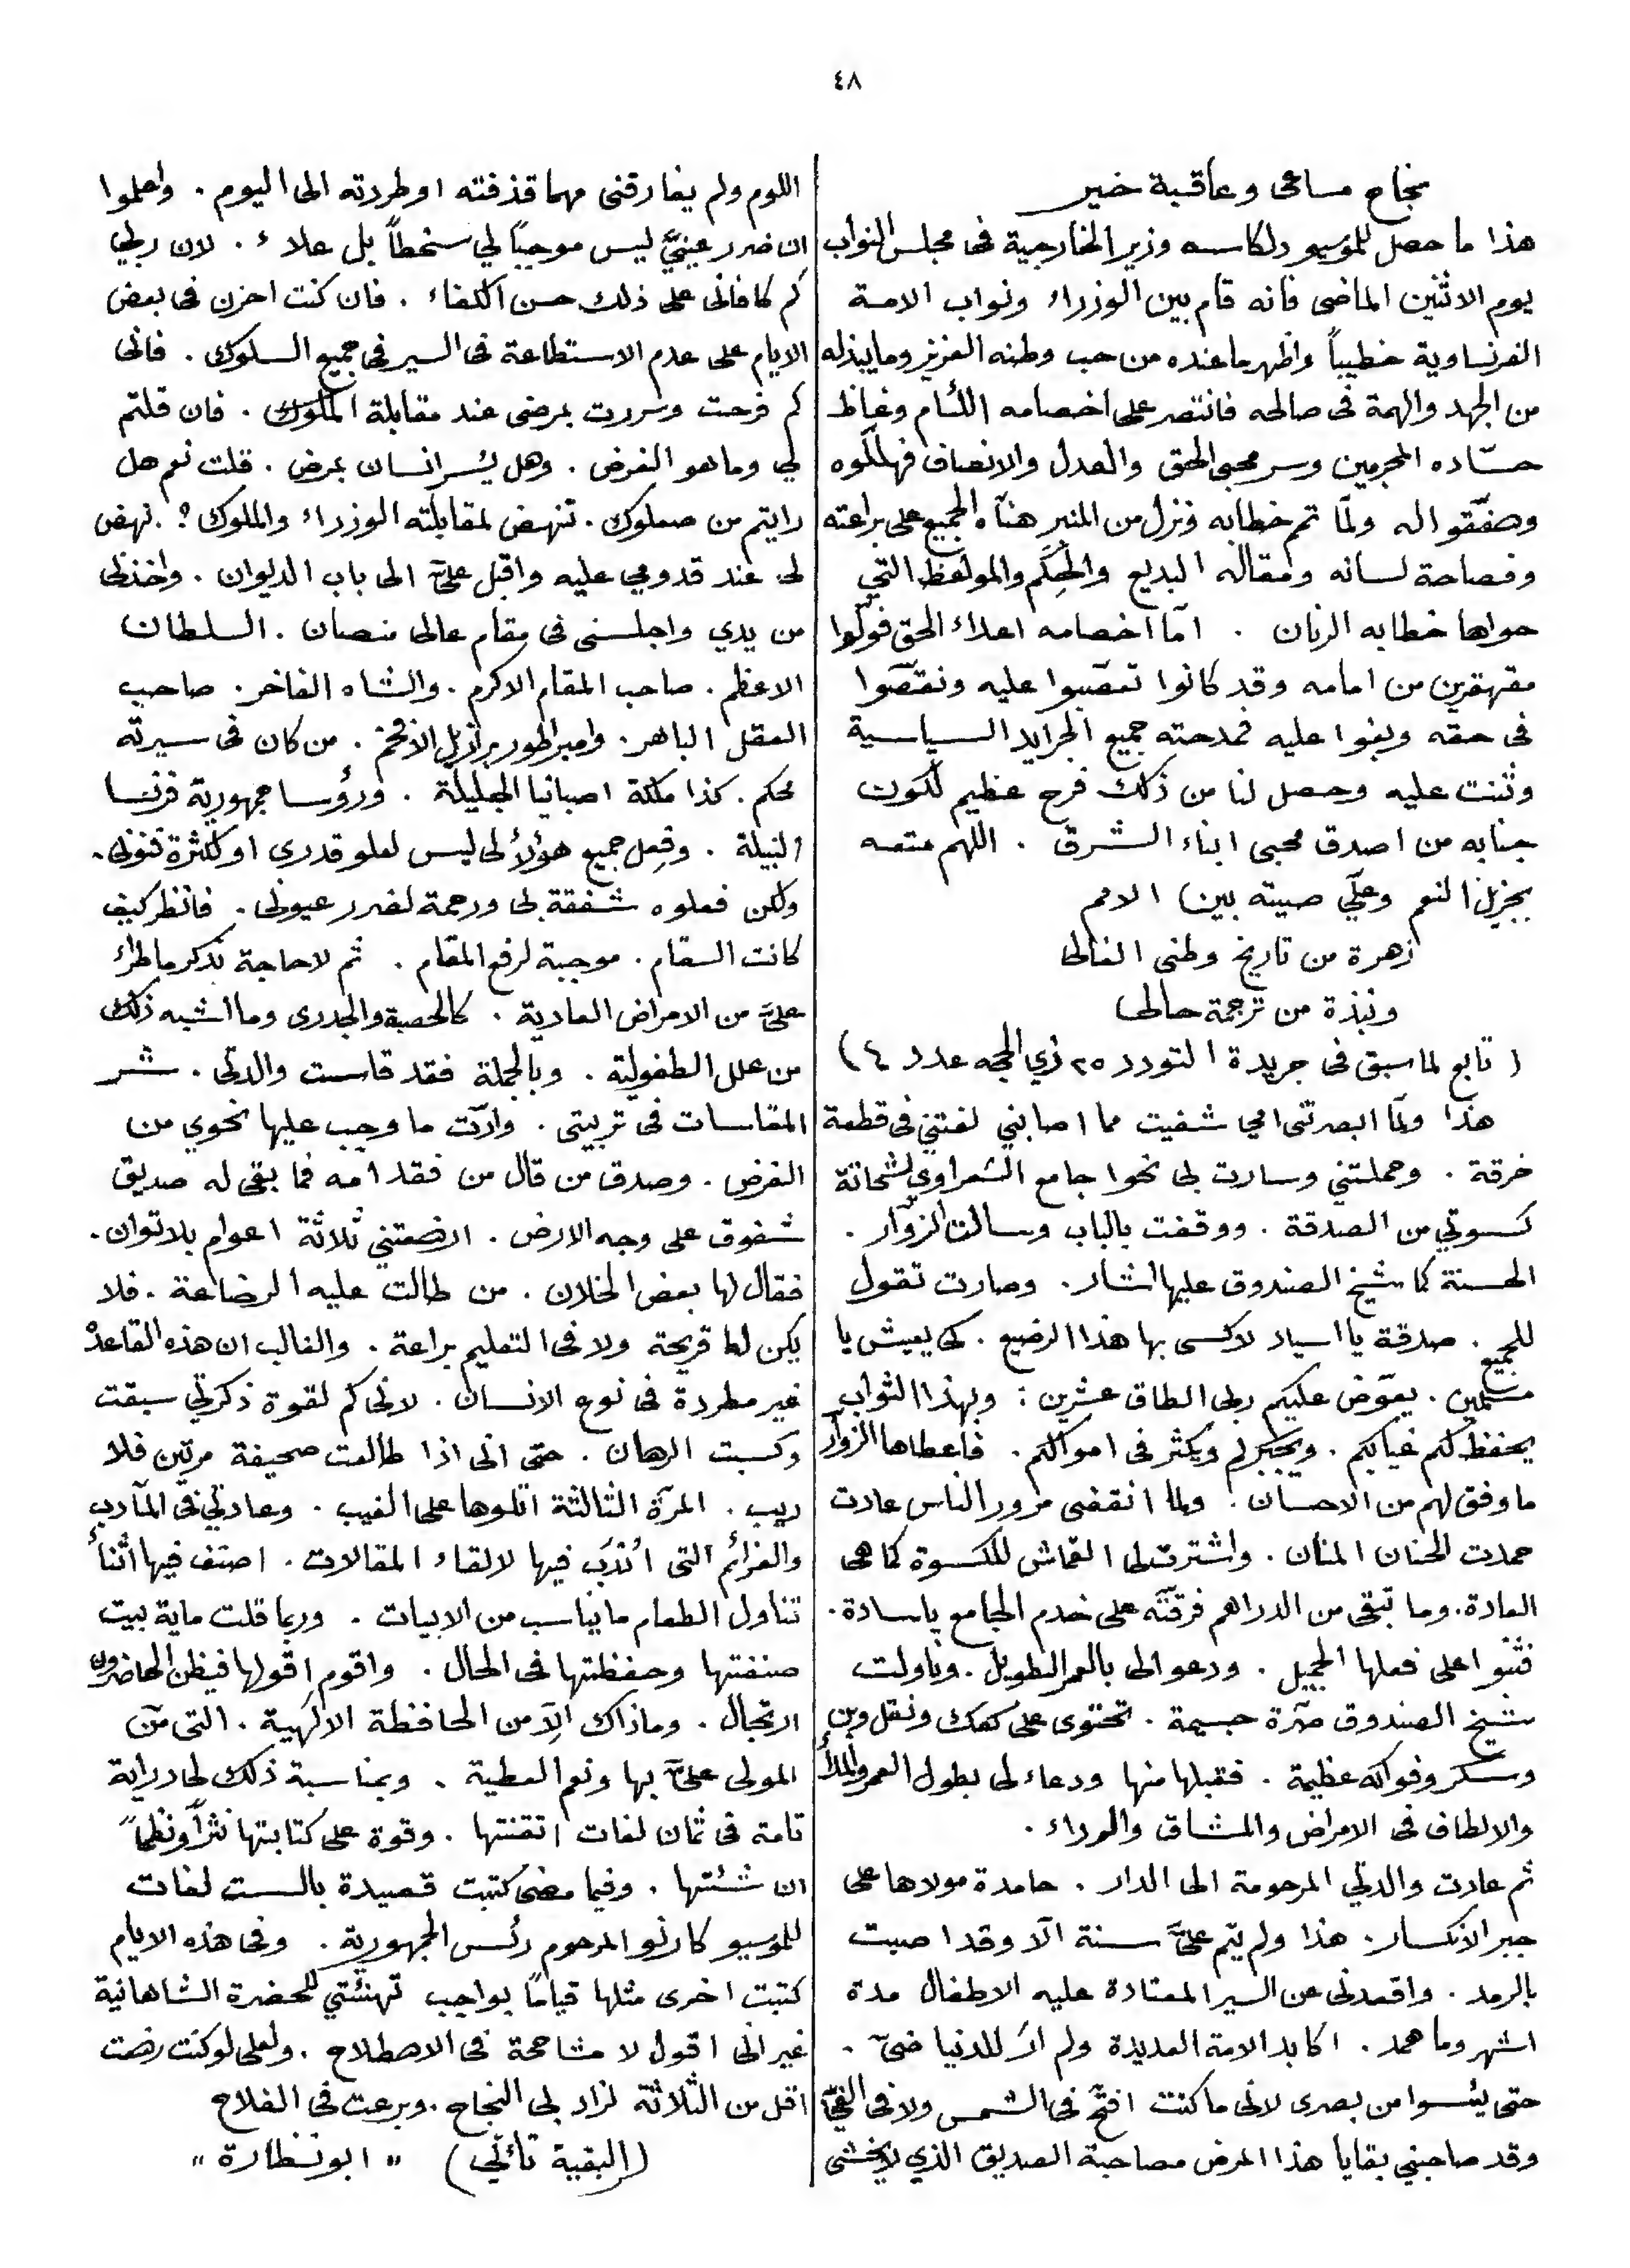 ٤٨
نجاح مساعى وعاقبة خير
هذا ما حصل للمؤسيو دلكاسه وزير الخارجية فى مجلس النواب
يوم الاثنين الماضى فانه قام بين الوزراء ونواب الامة
الفرنساوية خطيباً واظهر ما عنده من حب وطنه العزيز وما يبذله
من الجهد والهمة فى صالحه فانتصر على اخصامه اللئام وغاظ
حسّاده المجرمين وسر محبى الحق والعدل والانصاف فهللّوه
وصفّقوا له ولمّا تم خطابه ونزل من المنبر هنّاه الجميع على براعته
وفصاحة لسانه ومقاله البديع والحِكَم والمواعظ التي
حواها خطابه الرنان . امّا اخصامه اعداء الحق فولّوا
مقهقرين من امامه وقد كانوا تعصّبوا عليه ونقصّوا
فى حقه وبغوا عليه فمدحته جميع الجرايد السياسية
وثنت عليه وحصل لنا من ذلك فرح عظيم لكون
جنابه من اصدق محبى ابناء الشرق . اللهم متعه
بجزيل النعم وعلّي صيته بين الامم
زهرة من تاريخ وطنى الغالى
ونبذة من ترجمة حالى
( تابع لما سبق فى جريدة التودد ٢٥ ذي الحجه عدد ٤ )
هذا ولمّا ابصرتنى امي شفيت مما اصابني لفتني فى قطعة
خرقة . وحملتني وسارت بى نحوا جامع الشعراوي لشحاتة
كسوتي من الصدقة . ووقفت بالباب وسالت الزوّار .
الحسنة كما شيخ الصندوق عليها اشار . وصارت تقول
للجميع . صدقة يا اسياد لاكسى بها هذا الرضيع . كى يعيش يا
مسلمين . يعوّض عليكم ربى الطاق عشرين : وبهذا الثواب
يحفظ لكم غيابكم . ويكثر فى اموالكم . فاعطاها الزوار
ما وفق لهم من الاحسان . ولما انقضى مرور الناس عادت
حمدت الحنان المنان . واشترت لى القماش للكسوة كما هى
العادة . وما تبقى من الدراهم فرقتّه على خدم الجامع ياسادة .
فثنوا على فعلها الجميل . ودعوا لى بالعمر الطويل . وناولت
شيخ الصندوق صرّة جسيمة . تحتوى على كعك ونقل وبن
وسكر وفواكه عظيمة . فقبلها منها ودعاء لى بطول العمر
والالطاف فى الامراض والمشاق والرداء .
ثم عادت والدتي المرحومة الى الدار . حامدة مولاها على
جبر الانكسار . هذا ولم يتم علىَّ سنة الّا وقد اصبت
بالرمد . واقعدنى عن السير المعتادة عليه الاطفال مدة
اشهر وما همد . اكابد الامه العديدة ولم ارَ للدنيا ضىّ .
حتى يئسوا من بصرى لانى ما كنت افتّح فى الشمس ولا فى الفيّ
وقد صاحبني بقايا هذا المرض مصاحبة الصديق الذي لا يخشى
اللوم ولم يفارقنى مهما قذفته او طردته الى اليوم . واعلموا
ان ضرر عينيَّ ليس موجباً لي سخطاً بل علاء . لان ربي
كم كافانى على ذلك حسن اكفاء . فان كنت احزن فى بعض
الايام على عدم الاستطاعة فى السير فى جميع السلوك . فانى
كم فرحت وسررت بمرضى عند مقابلة الملوك . فان قلتم
لي وما هو الغرض . وهل يُسر انسان بمرض . قلت نعم هل
رايتم من صعلوك . تنهض لمقابلته الوزراء والملوك ؟ . نهض
لى عند قدومي عليه واقبل علىَّ الى باب الديوان . واخذنى
من يدي واجلسنى فى مقام عالى منصان . السلطان
الاعظم . صاحب المقام الاكرم . والشاه الفاخر . صاحب
العقل الباهر . وامبراطور برازيل الافخم . من كان فى سيرته
محكم . كذا ملكة اصبانيا الجليلة . ورؤسا جمهورية فرنسا
النبيلة . وفِعل جميع هؤلاْ لى ليس لعلو قدرى او لكثرة فنونى .
ولكن فعلوه شفقة بى ورحمة لضرر عيونى . فانظر كيف
كانت السقام . موجبة لرفع المقام . ثم لا حاجة بذكر ما طراء
علىَّ من الامراض العادية . كالحصبة والجدرى وما اشبه ذلك
من علل الطفولية . وبالجملة فقد قاست والدتى . شر
المقاسات فى تربيتى . وادّت ما وجب عليها نحوي من
الفرض . وصدق من قال من فقد امه فما بقى له صديق
شفوق على وجه الارض . ارضعتني ثلاثة اعوام بلا توان .
فقال لها بعض الخلان . من طالت عليه الرضاعة . فلا
يكن له قريحة ولا فى التعليم براعة . والغالب ان هذه القاعدة
غير مطردة فى نوع الانسان . لانى كم لقوة ذكرتي سبقت
وكسبت الرهان . حتى انى اذا طالعت صحيفة مرتين فلا
ريب . المرّة الثالثة اتلوها على الغيب . وعادتي فى المآدب
والعزائم التى اُنْدَب فيها لالقاء المقالات . اصنف فيها اثناْ
تناول الطعام ما يناسب من الابيات . وربما قلت ماية بيت
صنفتها وحفظتها فى الحال . واقوم اقولها فيظن الحاضرون
ارتجال . وما ذاك الّا من الحافظة الالهية . التى منّ
المولى علىَّ بها ونعم العطية . وبمناسبة ذلك لى دراية
تامة فى ثمان لغات اتقنتها . وقوة على كتابتها نثراً ونظماً
ان شئتها . وفيما مضى كتبت قصيدة بالست لغات
للمؤسيو كارنو المرحوم رئس الجمهورية . وفى هذه الايام
كتبت اخرى مثلها قياماً بواجب تهنئتي للحضرة الشاهانية
غير انى اقول لا مشاححة فى الاصطلاح . ولعلى لو كنت رضعت
اقل من الثلاثة لزاد بى النجاح . وبرعت فى الفلاح
(البقية تأتي) " ابو نظارة "